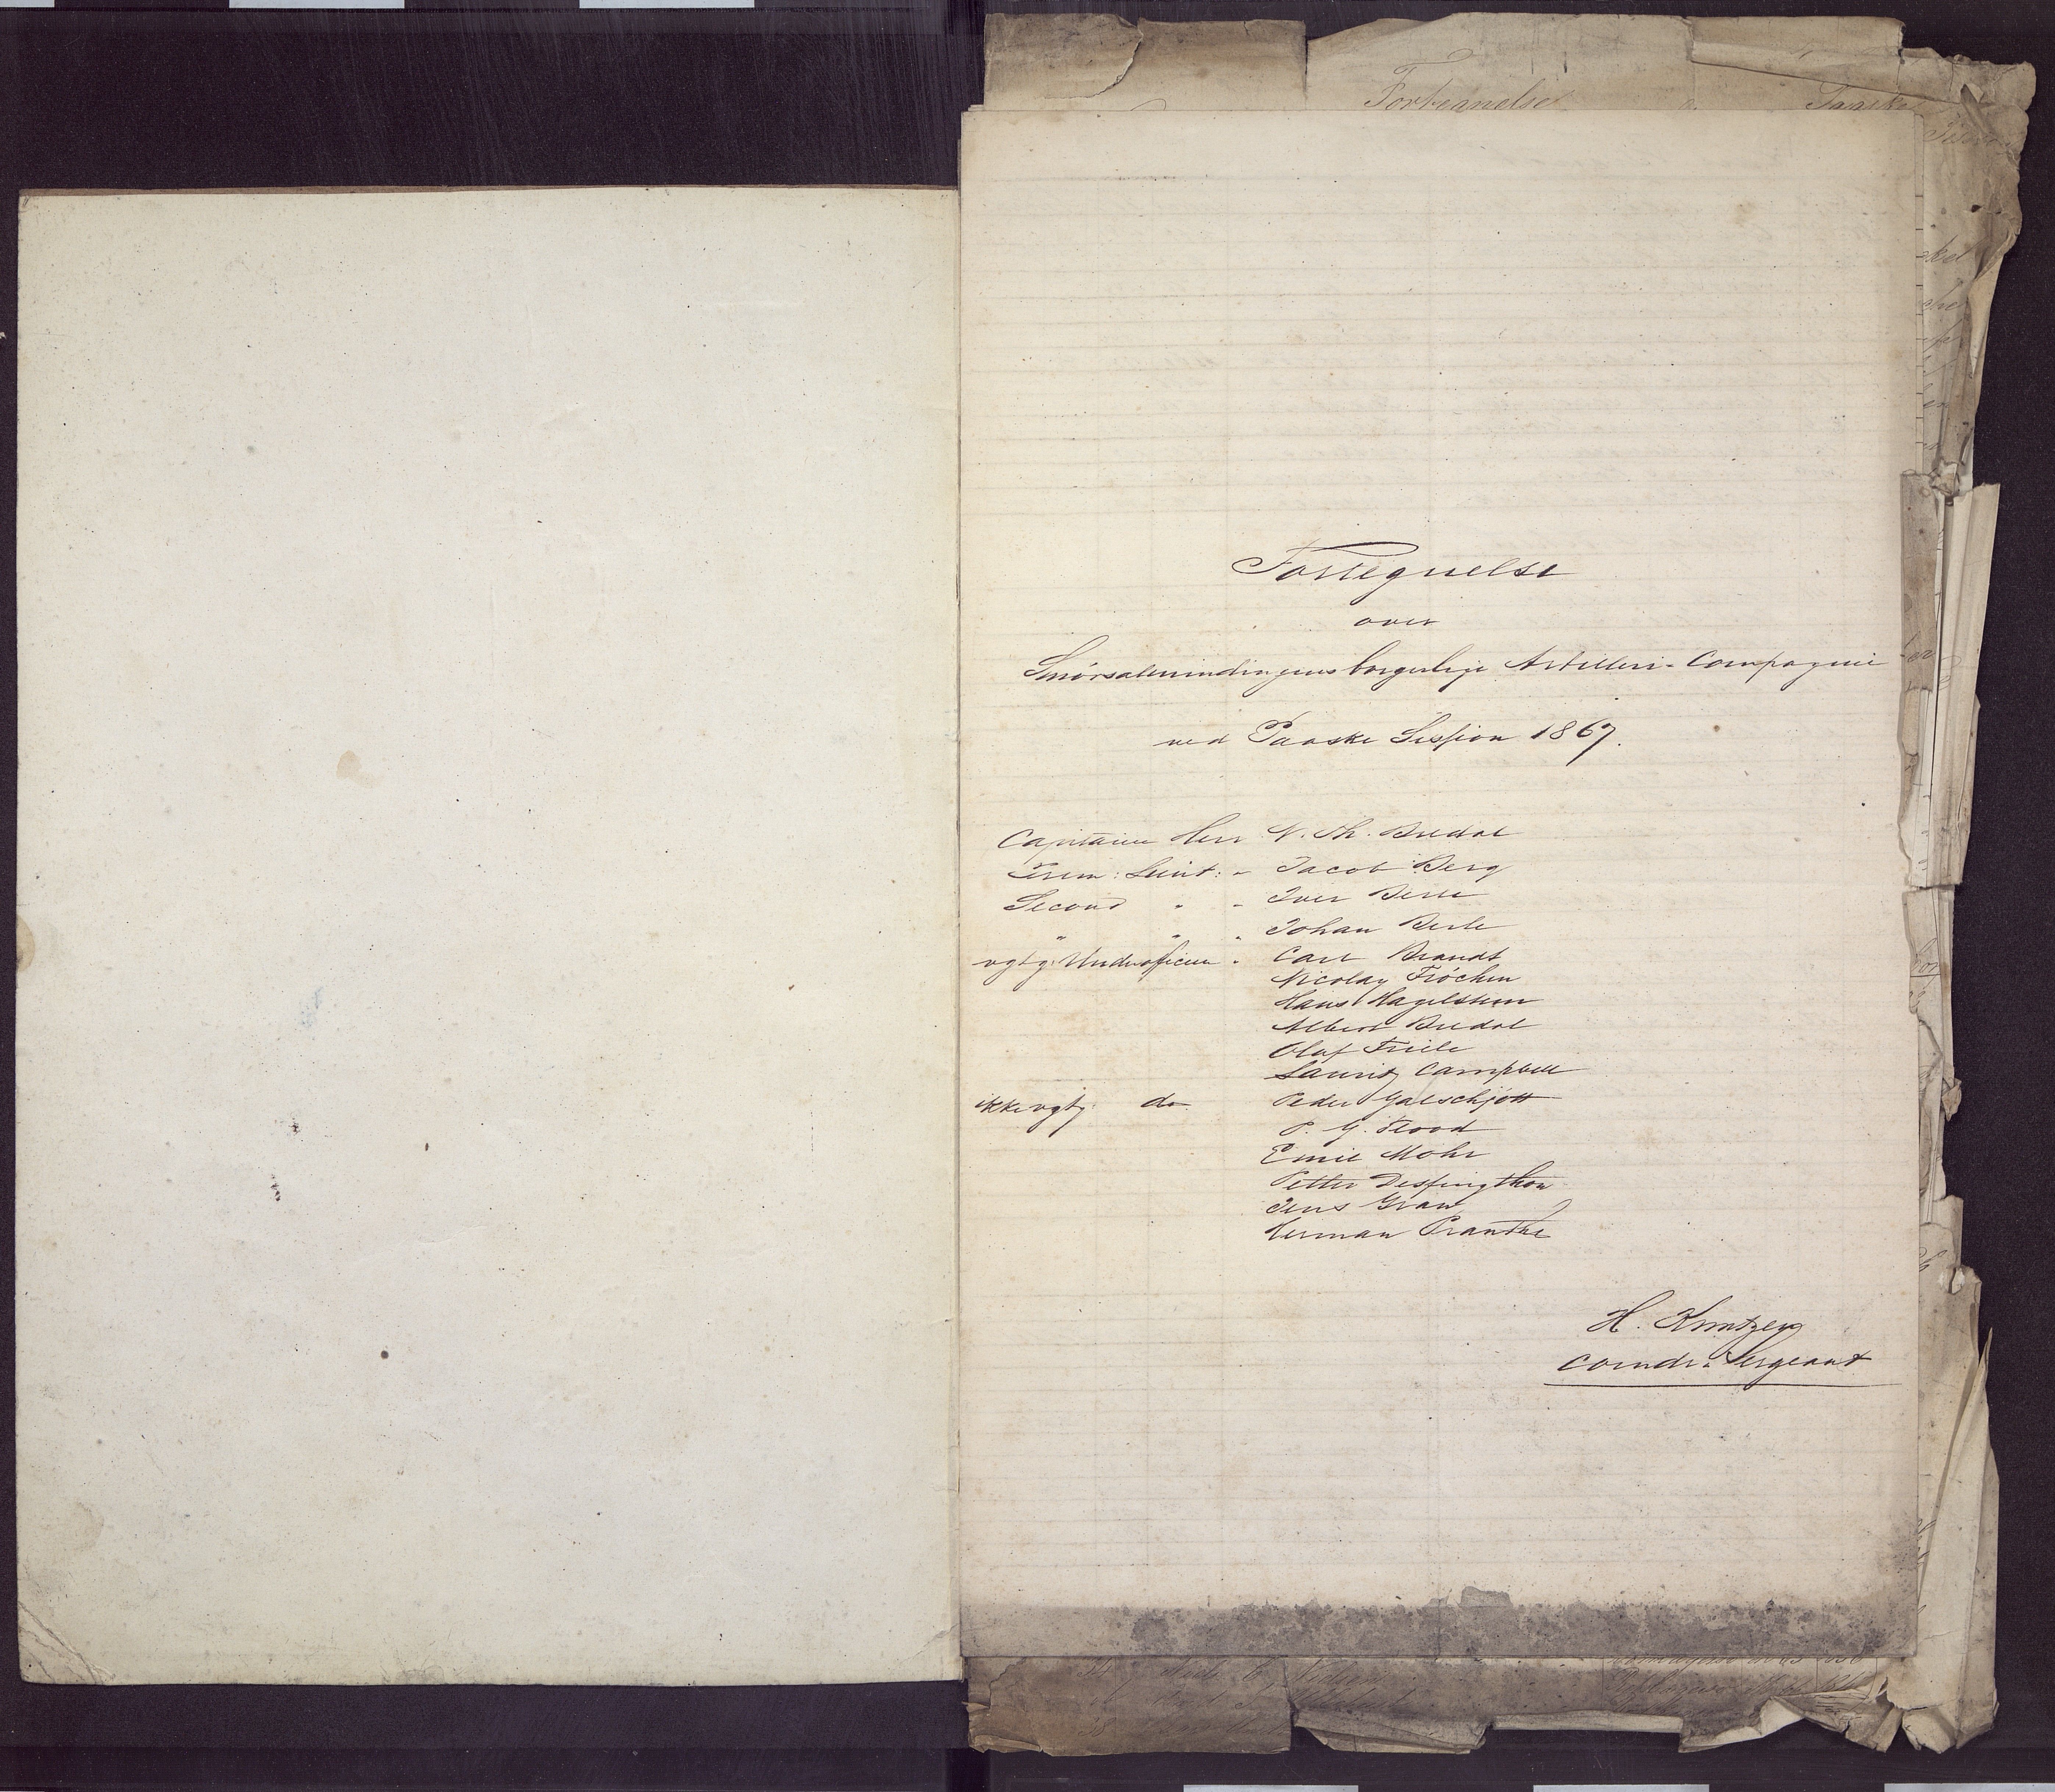 Fortegnelse
Fortegnelse
over
Smörsalmindingens borgerlige Artilleri-Compagnie
ved Paaske Session 1867.
Capitaine Herr N. Th. Bredal
Prem: Leint: " Jacob Berg
Second " " Iver Berle
" " " Johan Berle
vgtg. Underofficier " Carl Brandt
Nicolay Fröchen
Hans Hagelsteen
Albert Bredal
Olaf Friele
Lauritz Campbell
ikke vgtg: do Peder Galschjött
P. G. Flood
Emil Mohr
Petter Dessingthon
Jens Gran
Herman Pranthe
H. Kuntzey
Comdr: Sergeant